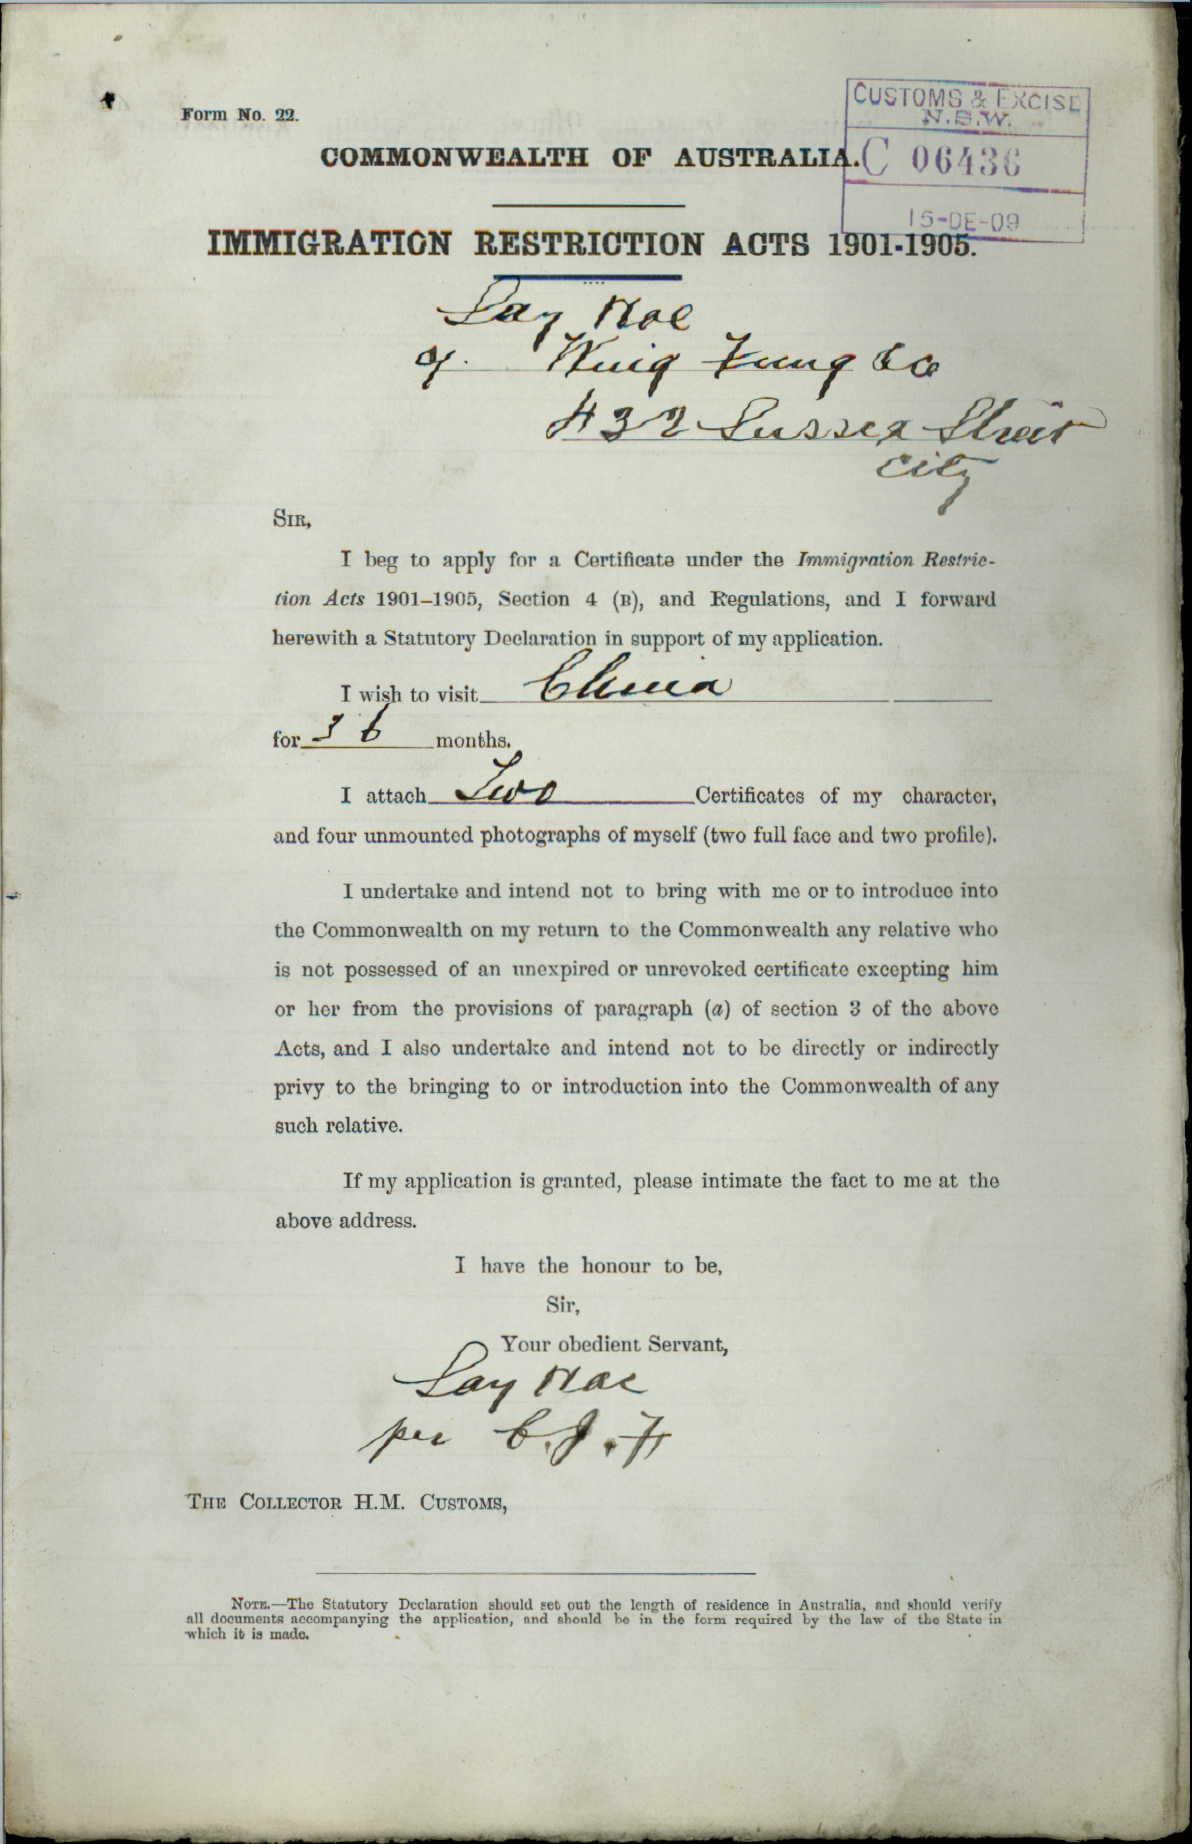 Form No. 22.
CUSTOMS & EXCISE
N.S.W.
COMMONWEALTH OF AUSTRALIA.
C 06436
15-DE-09
IMMIGRATION RESTRICTION ACTS 1901-1905.
Say Hoe
of
432 Sussex Street
City
SIR,
I beg to apply for a Certificate under the Immigration Restric-
tion Acts 1901–1905, Section 4 (B), and Regulations, and I forward
herewith a Statutory Declaration in support of my application.
I wish to visit China
for 36 months.
I attach Two Certificates of my character,
and four unmounted photographs of myself (two full face and two profile).
I undertake and intend not to bring with me or to introduce into
the Commonwealth on my return to the Commonwealth any relative who
is not possessed of an unexpired or unrevoked certificate excepting him
or her from the provisions of paragraph (a) of section 3 of the above
Acts, and I also undertake and intend not to be directly or indirectly
privy to the bringing to or introduction into the Commonwealth of any
such relative.
If my application is granted, please intimate the fact to me at the
above address.
I have the honour to be,
Sir,
Your obedient Servant,
Say Hoe
per C. J. F
THE COLLECTOR H.M. CUSTOMS,
NOTE.—The Statutory Declaration should set out the length of residence in Australia, and should verify
all documents accompanying the application, and should be in the form required by the law of the State in
which it is made.